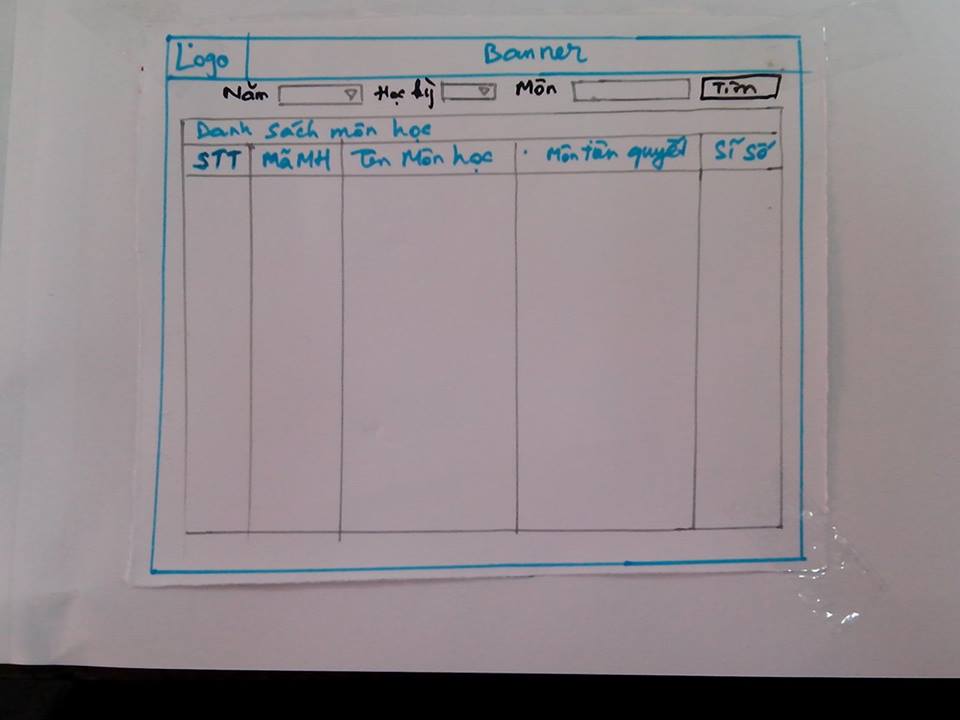 Logo Banner
Năm Học kỳ Môn Tìm
Danh sách môn học
STT Mã MH Tên Môn học Môn tiên quyết Sĩ số